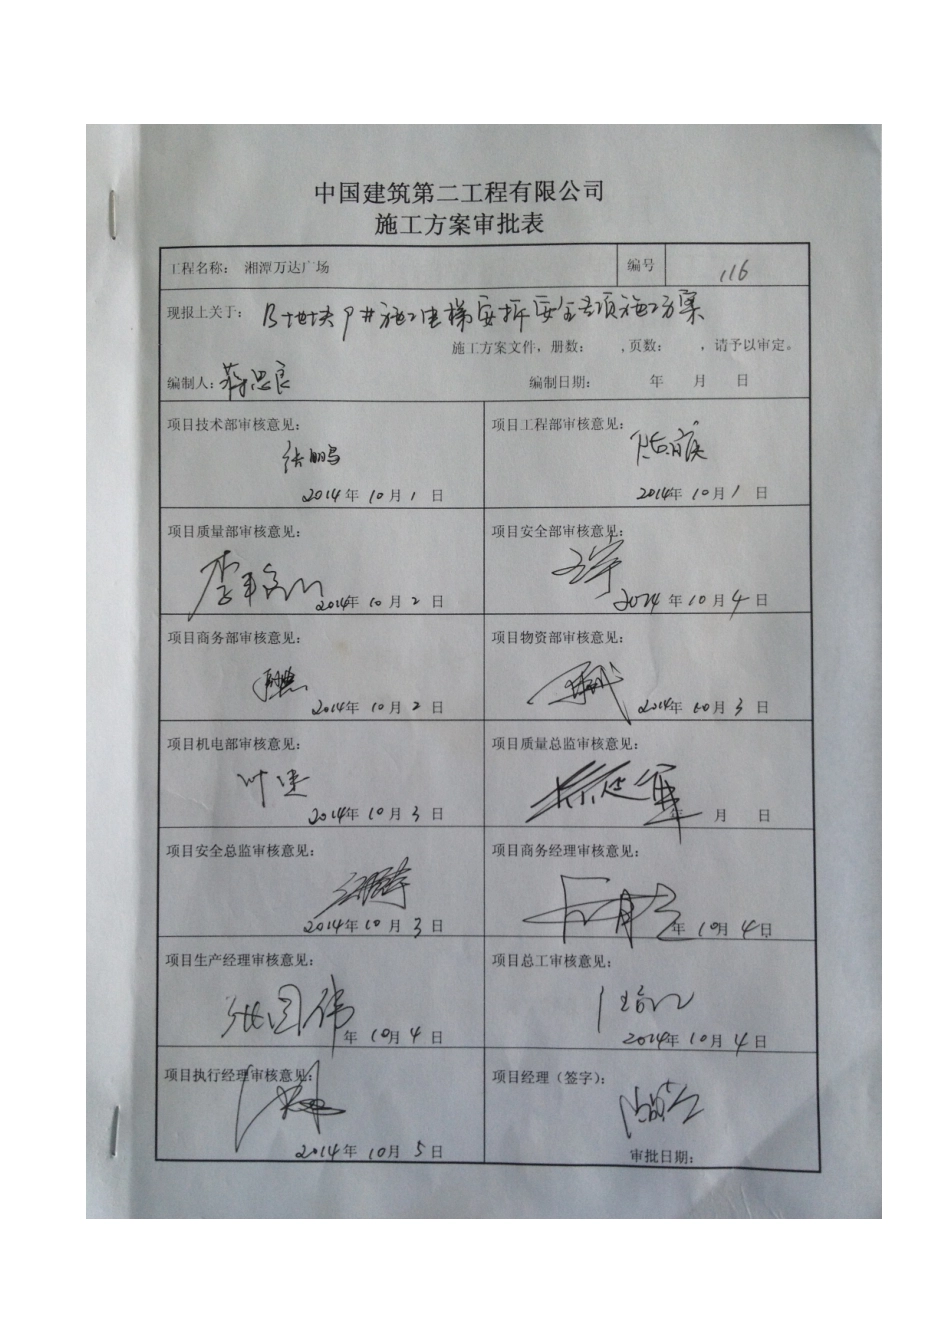 中国建筑第二工程有限公司
施工方案审批表
工程名称： 湘潭万达广场 编号 116
现报上关于： B地块9#施工电梯安拆安全专项施工方案
施工方案文件，册数： ，页数： ，请予以审定。
编制人：蒋思良 编制日期： 年 月 日
项目技术部审核意见： 项目工程部审核意见：
张鹏
2014年10月1日 2014年10月1日
项目质量部审核意见： 项目安全部审核意见：
2014年10月2日 2014年10月4日
项目商务部审核意见： 项目物资部审核意见：
2014年10月2日 2014年10月3日
项目机电部审核意见： 项目质量总监审核意见：
2014年10月3日 年 月 日
项目安全总监审核意见： 项目商务经理审核意见：
2014年10月3日 年10月4日
项目生产经理审核意见： 项目总工审核意见：
张国伟
年10月4日 2014年10月4日
项目执行经理审核意见： 项目经理（签字）：
2014年10月5日 审批日期：